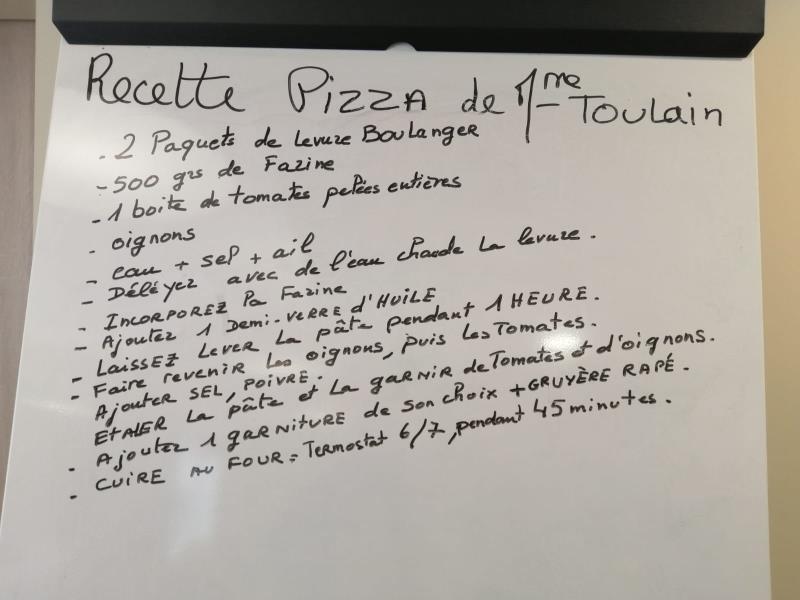 Recette Pizza de Mme Toulain
- 2 Paquets de levure Boulanger
- 500 grs de Farine
- 1 boite de tomates pelées entières
- oignons
- eau + sel + ail
- Déléyez avec de l'eau chaude la levure.
- INCORPOREZ la Farine
- Ajoutez 1 Demi-verre d'HUILE
- LAISSEZ Lever La pâte pendant 1 HEURE.
- Faire revenir les oignons, puis les Tomates.
Ajouter SEL, POIVRE.
EtALER La pâte et La garnir de Tomates et d'oignons.
- Ajoutez 1 garniture de son choix + GRUYÈRE RAPÉ.
- CUIRE AU FOUR = Termostat 6/7, pendant 45 minutes.